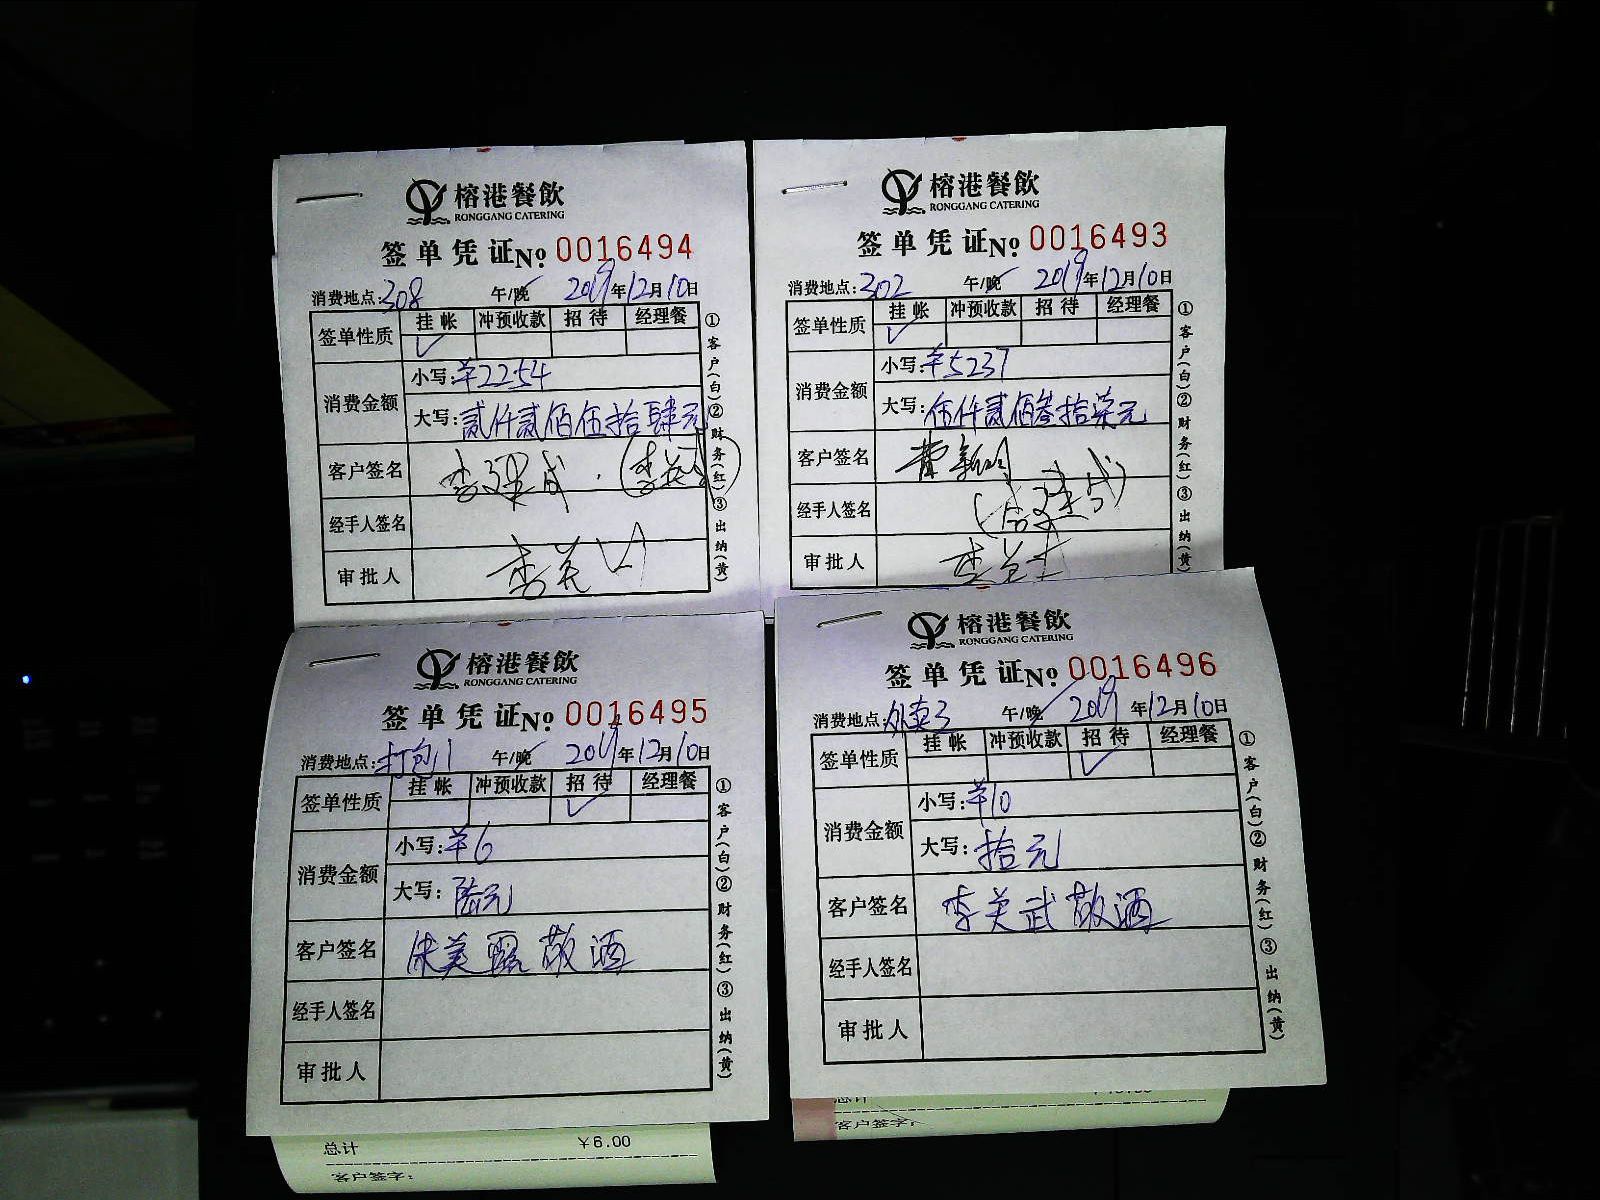 榕港餐飲
RONGGANG CATERING
签单凭证No. 0016494
消费地点:308 午/晚 2019年12月10日
签单性质 挂帐 冲预收款 招待 经理餐
消费金额
小写:¥2254
大写:贰仟贰佰伍拾肆元
客户签名
经手人签名
审批人
①客户(白)②财务(红)③出纳(黄)
榕港餐飲
RONGGANG CATERING
签单凭证No. 0016493
消费地点:302 午/晚 2019年12月10日
签单性质 挂帐 冲预收款 招待 经理餐
消费金额
小写:¥5237
大写:伍仟贰佰叁拾柒元
客户签名
经手人签名
审批人
①客户(白)②财务(红)③出纳(黄)
榕港餐飲
RONGGANG CATERING
签单凭证No. 0016495
消费地点:打包1 午/晚 2019年12月10日
签单性质 挂帐 冲预收款 招待 经理餐
消费金额
小写:¥6
大写:陆元
客户签名 朱美露敬酒
经手人签名
审批人
①客户(白)②财务(红)③出纳(黄)
总计 ¥6.00
客户签字:
榕港餐飲
RONGGANG CATERING
签单凭证No. 0016496
消费地点:外卖3 午/晚 2019年12月10日
签单性质 挂帐 冲预收款 招待 经理餐
消费金额
小写:¥10
大写:拾元
客户签名 李美武敬酒
经手人签名
审批人
①客户(白)②财务(红)③出纳(黄)
总计
客户签字: